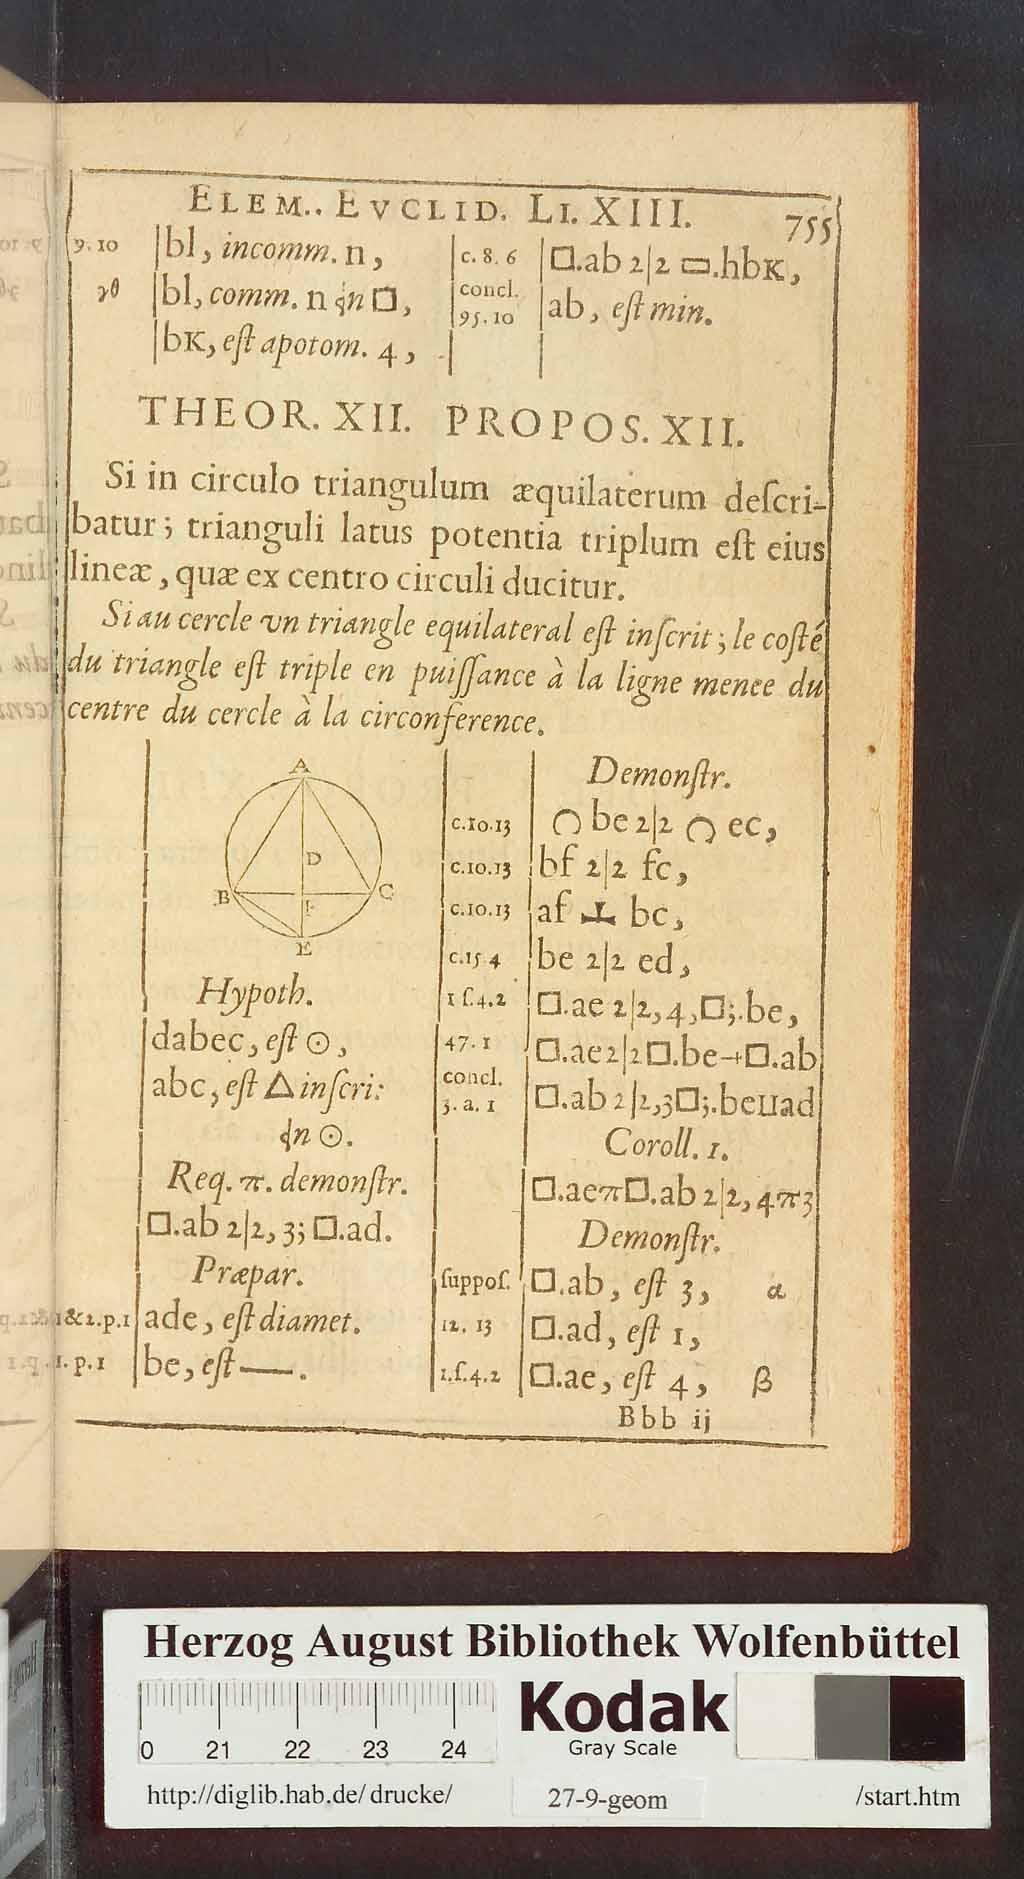 ELEM.. EVCLID. LI. XIII. 755
9. 10 bl, incomm. n,
γθ bl, comm. n ɖn □,
bK, eſt apotom. 4,
c. 8. 6 □.ab 2|2 ▭.hbK,
concl.
95. 10 ab, eſt min.
THEOR. XII. PROPOS. XII.
Si in circulo triangulum æquilaterum deſcri-
batur; trianguli latus potentia triplum eſt eius
lineæ, quæ ex centro circuli ducitur.
Si au cercle vn triangle equilateral eſt inſcrit; le coſté
du triangle eſt triple en puiſſance à la ligne menee du
centre du cercle à la circonference.
A
D
B
C
F
E
Hypoth.
dabec, eſt ⊙,
abc, eſt △ inſcri:
ɖn ⊙.
Req. π. demonſtr.
□.ab 2|2, 3; □.ad.
Præpar.
1&2.p.1 ade, eſt diamet.
1. p. 1 be, eſt —.
Demonſtr.
c.10.13 ◠ be 2|2 ◠ ec,
c.10.13 bf 2|2 fc,
c.10.13 af ⊥ bc,
c.15 4 be 2|2 ed,
1 ſ.4.2 □.ae 2|2, 4, □;.be,
47. 1 □.ae 2|2 □.be+□.ab
concl.
3. a. 1 □.ab 2|2,3□;.beuad
Coroll. 1.
□.aeπ□.ab 2|2, 4π3
Demonſtr.
ſuppoſ. □.ab, eſt 3, α
12. 13 □.ad, eſt 1,
1.ſ.4.2 □.ae, eſt 4, β
Bbb ij
Herzog August Bibliothek Wolfenbüttel
0 21 22 23 24
Kodak
Gray Scale
http://diglib.hab.de/drucke/ 27-9-geom /start.htm